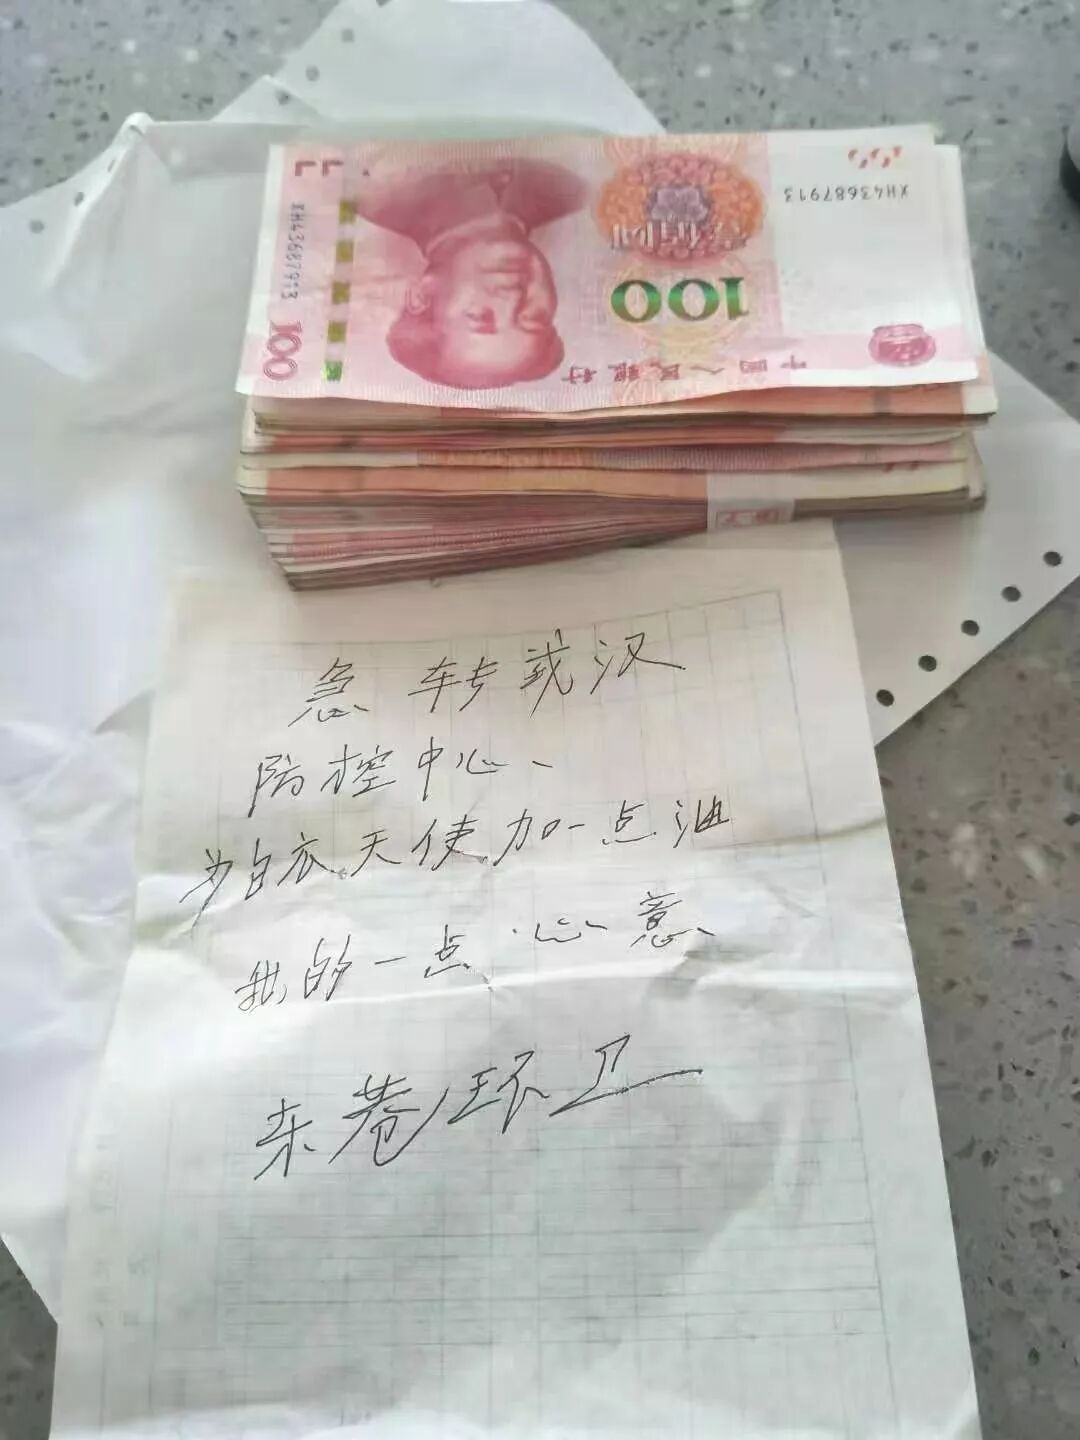 XH43687913
XH43687913
100
100
中国人民银行
急 转武汉
防控中心、
为白衣天使加一点油
我的一点心意、
东巷环卫